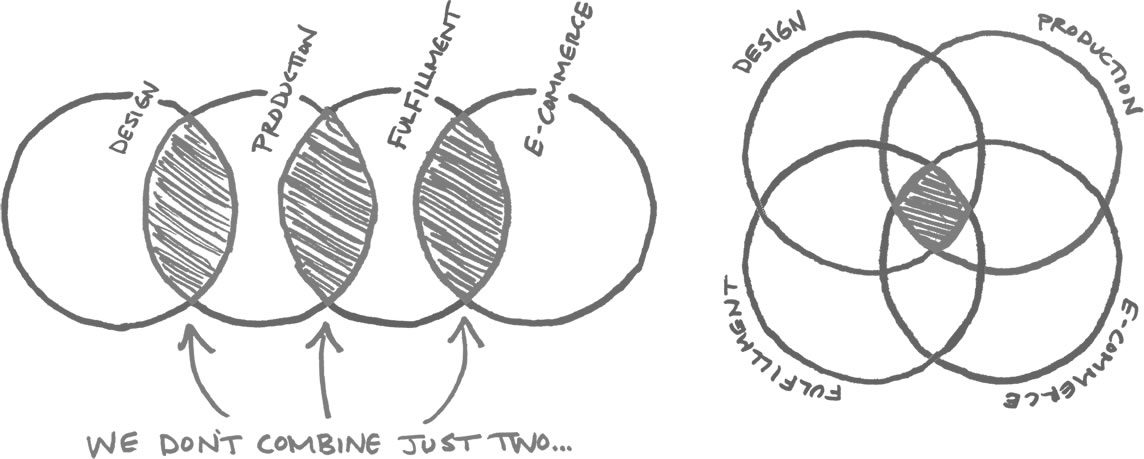 DESIGN
PRODUCTION
FULFILLMENT
E-COMMERCE
WE DON'T COMBINE JUST TWO...
DESIGN
PRODUCTION
FULFILLMENT
E-COMMERCE